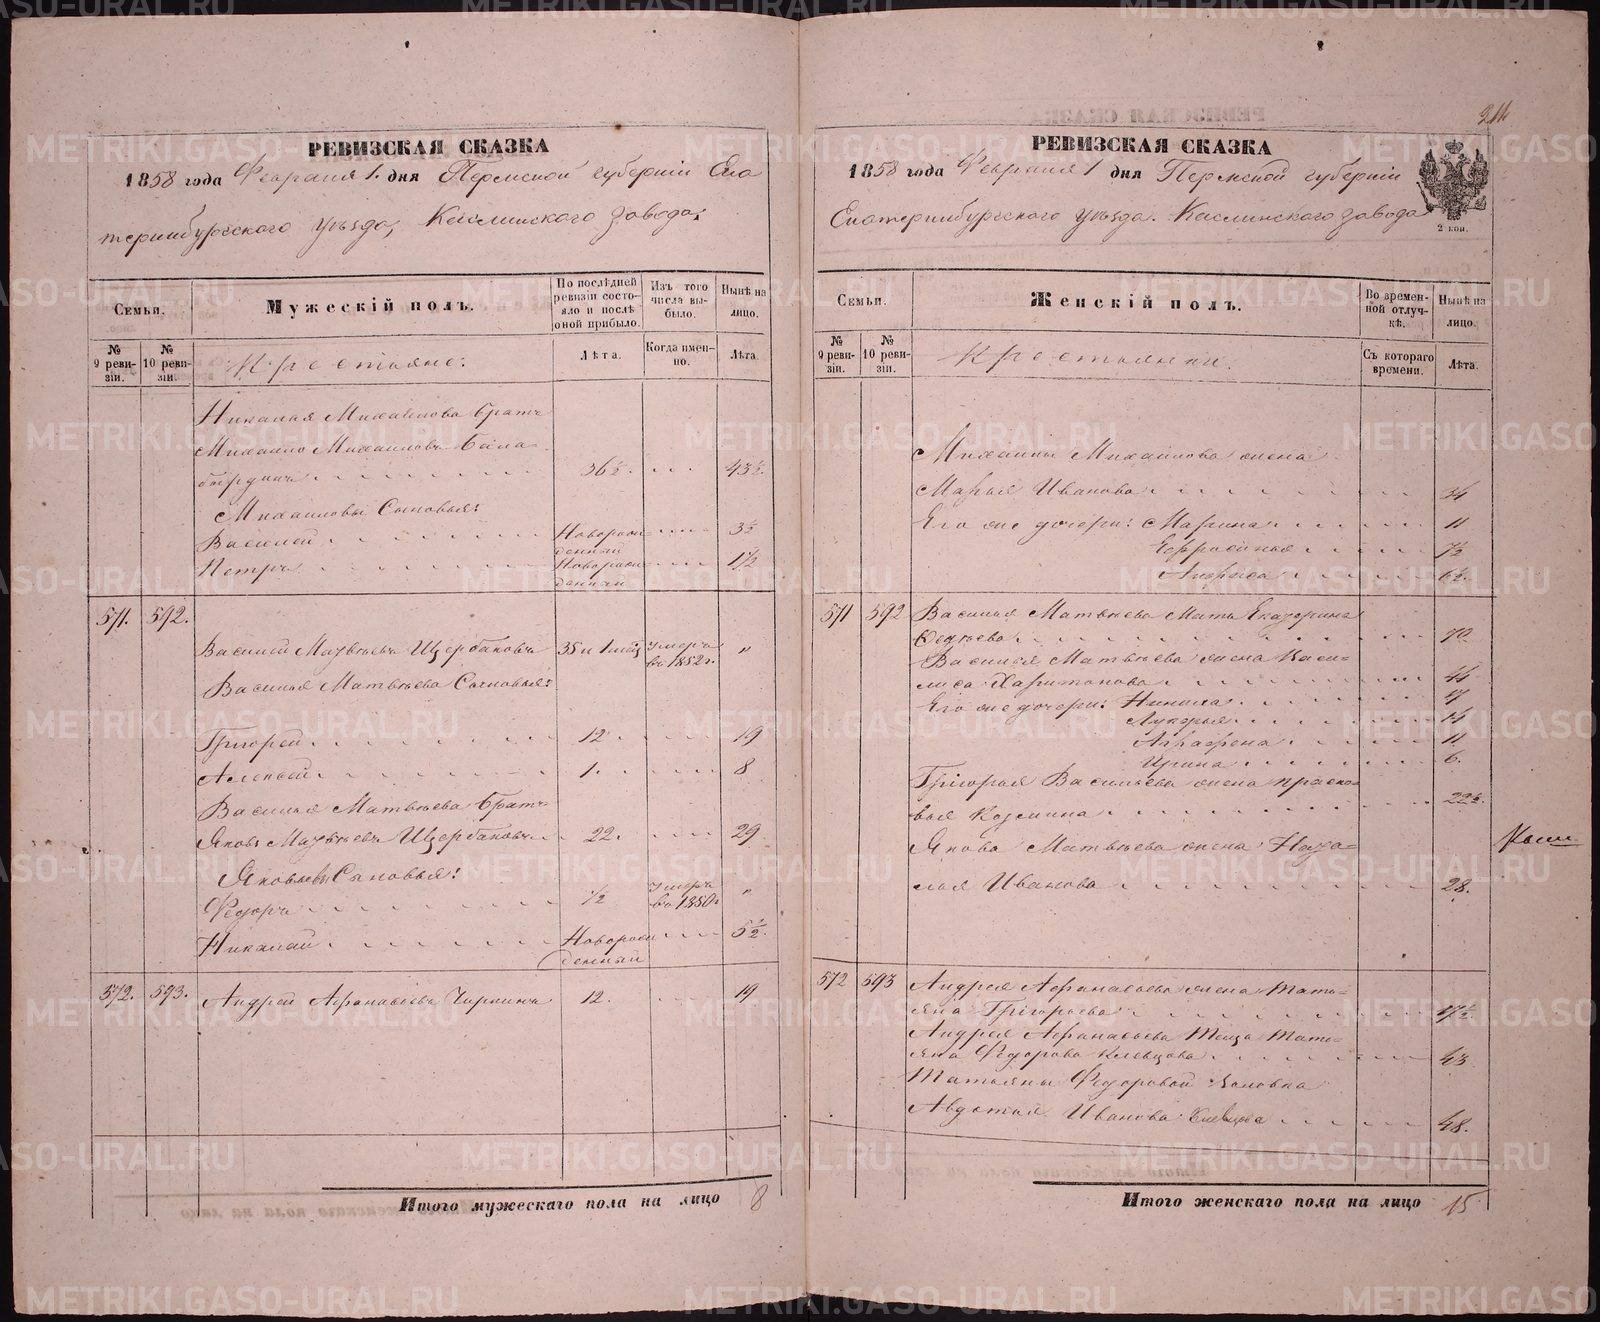 РЕВИЗСКАЯ СКАЗКА
1858 года Февраля 1 дня Пермской губернiи Ека
теринбургскаго уѣзда, Каслинскаго завода,
Семьи.
Мужескiй полъ.
По послѣдней ревизiи состояло и послѣ оной прибыло.
Изъ того числа выбыло.
Нынѣ на лицо.
№ 9 ревизiи.
№ 10 ревизiи.
Крестьяне:
Лѣта.
Когда именно.
Лѣта.
Николая Михайлова братъ
Михайло Михайловъ
36½. 43½.
Михайловы Сыновья:
Василей Новорожденный 3½
Петръ Новорожденный 1½
571. 592.
Василей Матвѣевъ Щербаковъ 35 и 1 мѣс умеръ въ 1852 г. "
Василья Матвѣева Сыновья:
Григорей 12 19
Алексей 1. 8
Василья Матвѣева братъ
Яковъ Матвѣевъ Щербаковъ 22. 29
Яковлевы Сыновья:
Федоръ ½ умеръ въ 1850 г "
Николай Новорожденный 5½.
572. 593. Андрей Афанасьевъ Чиркинъ 12. 19
Итого мужескаго пола на лицо 8
РЕВИЗСКАЯ СКАЗКА
1858 года Февраля 1 дня Пермской губернiи
Екатеринбургскаго уѣзда. Каслинскаго завода
2 коп.
Семьи.
Женскiй полъ.
Во временной отлучкѣ.
Нынѣ на лицо.
№ 9 ревизiи.
№ 10 ревизiи.
Крестьянки.
Съ котораго времени.
Лѣта.
Михайлы Михайлова жена
Марья Иванова 34
Его же дочери: Марина 11
Ефросинья 7½
6½.
571 592 Василья Матвѣева Мать Екатерина
70.
Василья Матвѣева жена Васи-
лиса Харитонова 44
Его же дочери: 17
Лукерья 14
Аграфена 11
Ирина 6.
Григорья Васильева жена Праско-
вья Козмина 22½.
Якова Матвѣева жена Ната-
лья Иванова 28.
572 593 Андрея Афанасьева жена Тать-
яна Григорьева 17½.
Андрея Афанасьева Теща Тать-
яна Федорова Клевцова 43
Татьяны Федоровой Золовка
Авдотья Иванова Клевцова 48.
Итого женскаго пола на лицо 15
METRIKI.GASO-URAL.RU